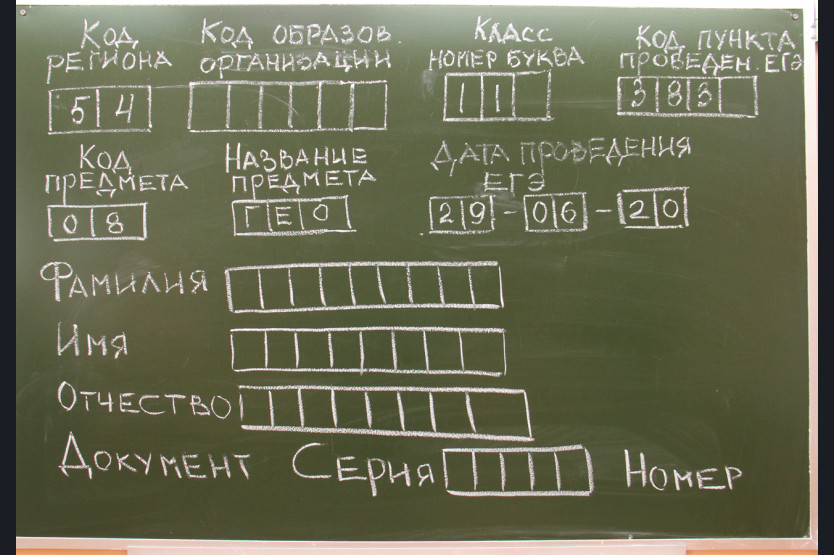 Код региона
Код образов. организации
Класс номер буква
Код пункта проведен. ЕГЭ
54
11
383
Код предмета
Название предмета
Дата проведения ЕГЭ
08
ГЕО
29-06-20
Фамилия
Имя
Отчество
Документ Серия Номер